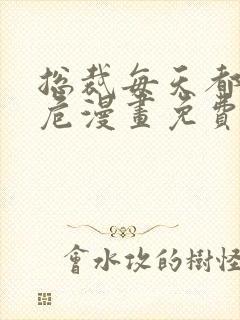 總裁每天都
危漫畫免費
會水攻的樹怪